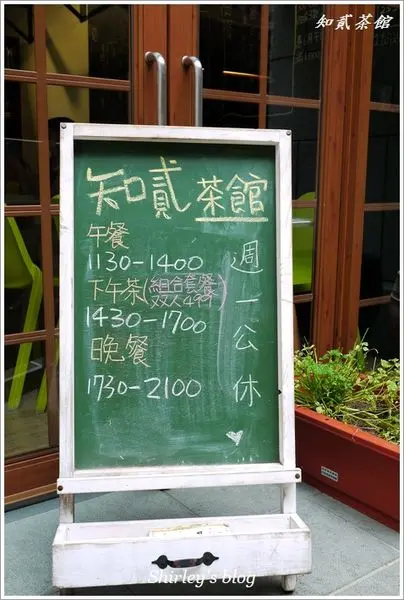 知貳茶館
知貳 茶館
午餐
1130-1400
下午茶(組合套餐 双人498)
1430-1700
晚餐
1730-2100
週一公休
Shirley's blog